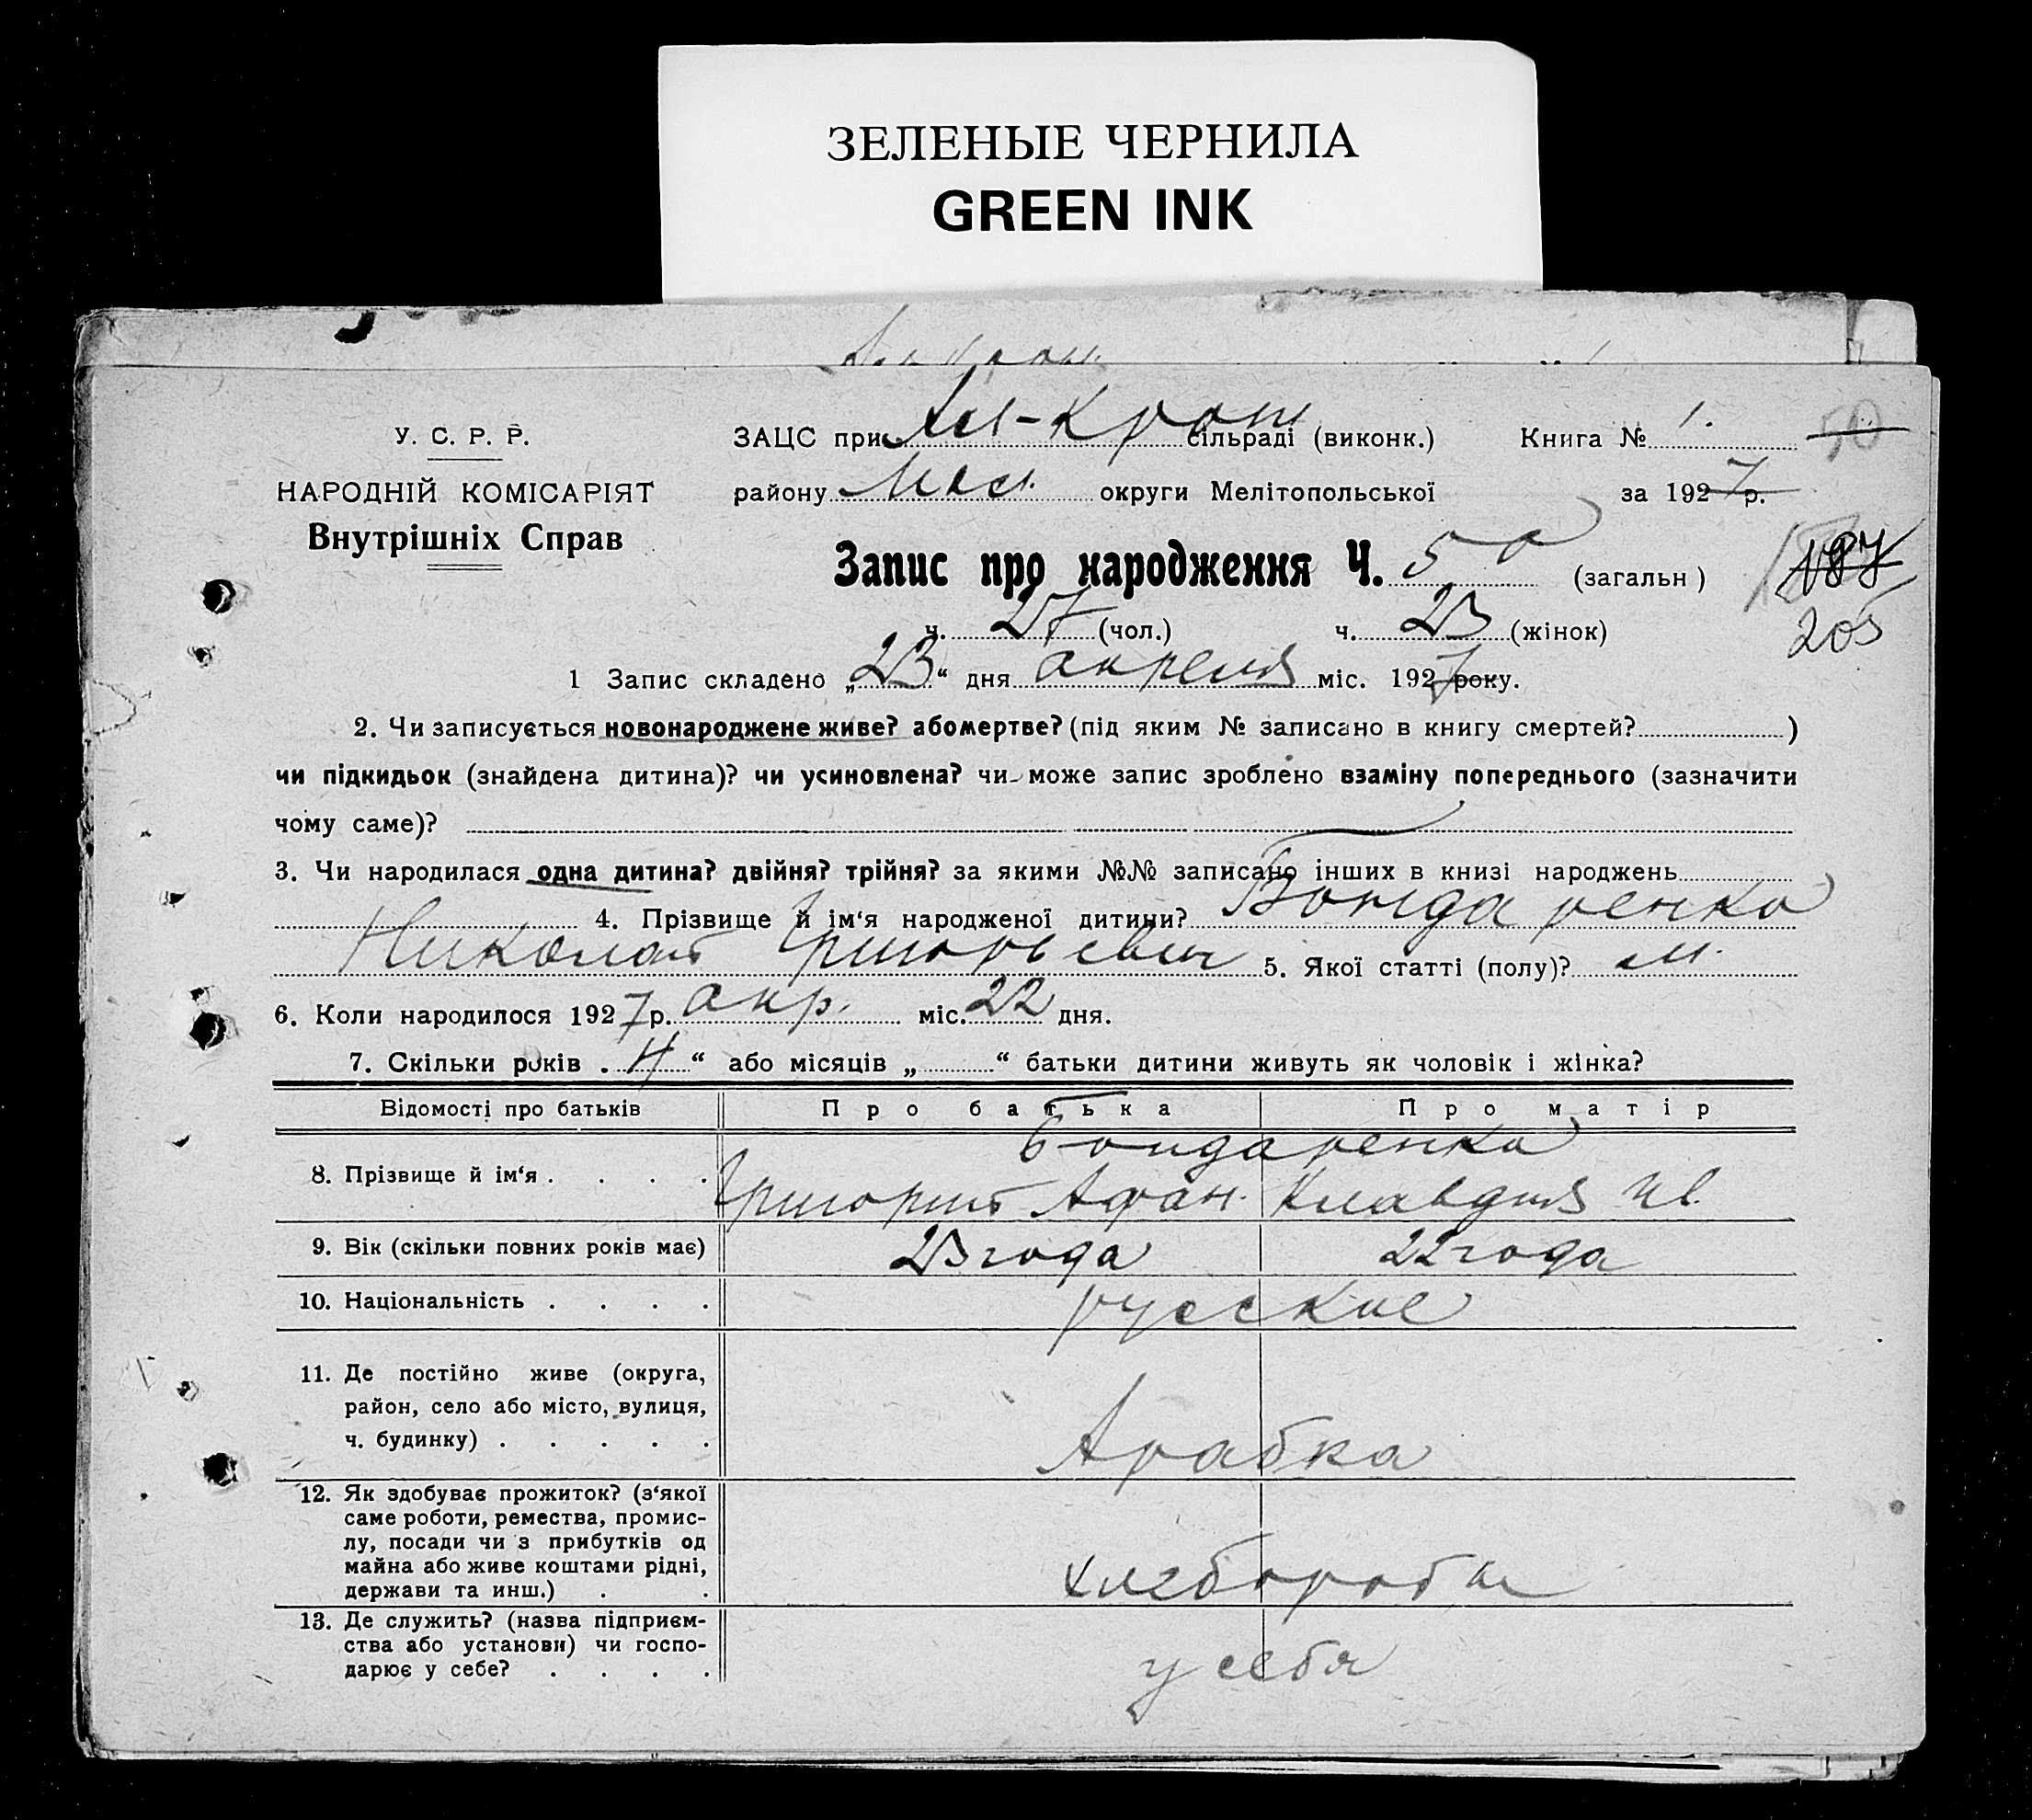 ЗЕЛЕНЫЕ ЧЕРНИЛА
GREEN INK
У. С. Р. Р.
НАРОДНІЙ КОМІСАРІЯТ
Внутрішніх Справ
ЗАЦС при сільраді (виконк.) Книга № 1. 50
району округи Мелітопольської за 1927 р.
Запис про народження Ч. 50 (загальн) 187
ч. 27 (чол.) ч. 23 (жінок) 205
1 Запис складено „23“ дня апреля міс. 1927 року.
2. Чи записується новонароджене живе? або мертве? (під яким № записано в книгу смертей? )
чи підкидьок (знайдена дитина)? чи усиновлена? чи може запис зроблено взаміну попереднього (зазначити
чому саме)?
3. Чи народилася одна дитина? двійня? трійня? за якими №№ записано інших в книзі народжень
4. Прізвище й ім‘я народженої дитини? Бондаренко
Николай Григорьевич 5. Якої статті (полу)? м.
6. Коли народилося 1927 р. апр. міс. 22 дня.
7. Скільки років . 4 “ або місяців „ “ батьки дитини живуть як чоловік і жінка?
Відомості про батьків Про батька Про матір
8. Прізвище й ім‘я . . . . Бондаренко
Григорий Афан. Клавдия Ив.
9. Вік (скільки повних років має) 23 года 22 года
10. Національність . . . . русские
11. Де постійно живе (округа,
район, село або місто, вулиця,
ч. будинку) . . . . . Арабка
12. Як здобуває прожиток? (з‘якої
саме роботи, ремества, промис-
лу, посади чи з прибутків од
майна або живе коштами рідні,
держави та инш.) . . хлеборобы
13. Де служить? (назва підприєм-
ства або установи) чи госпо-
дарює у себе? . . . . у себя